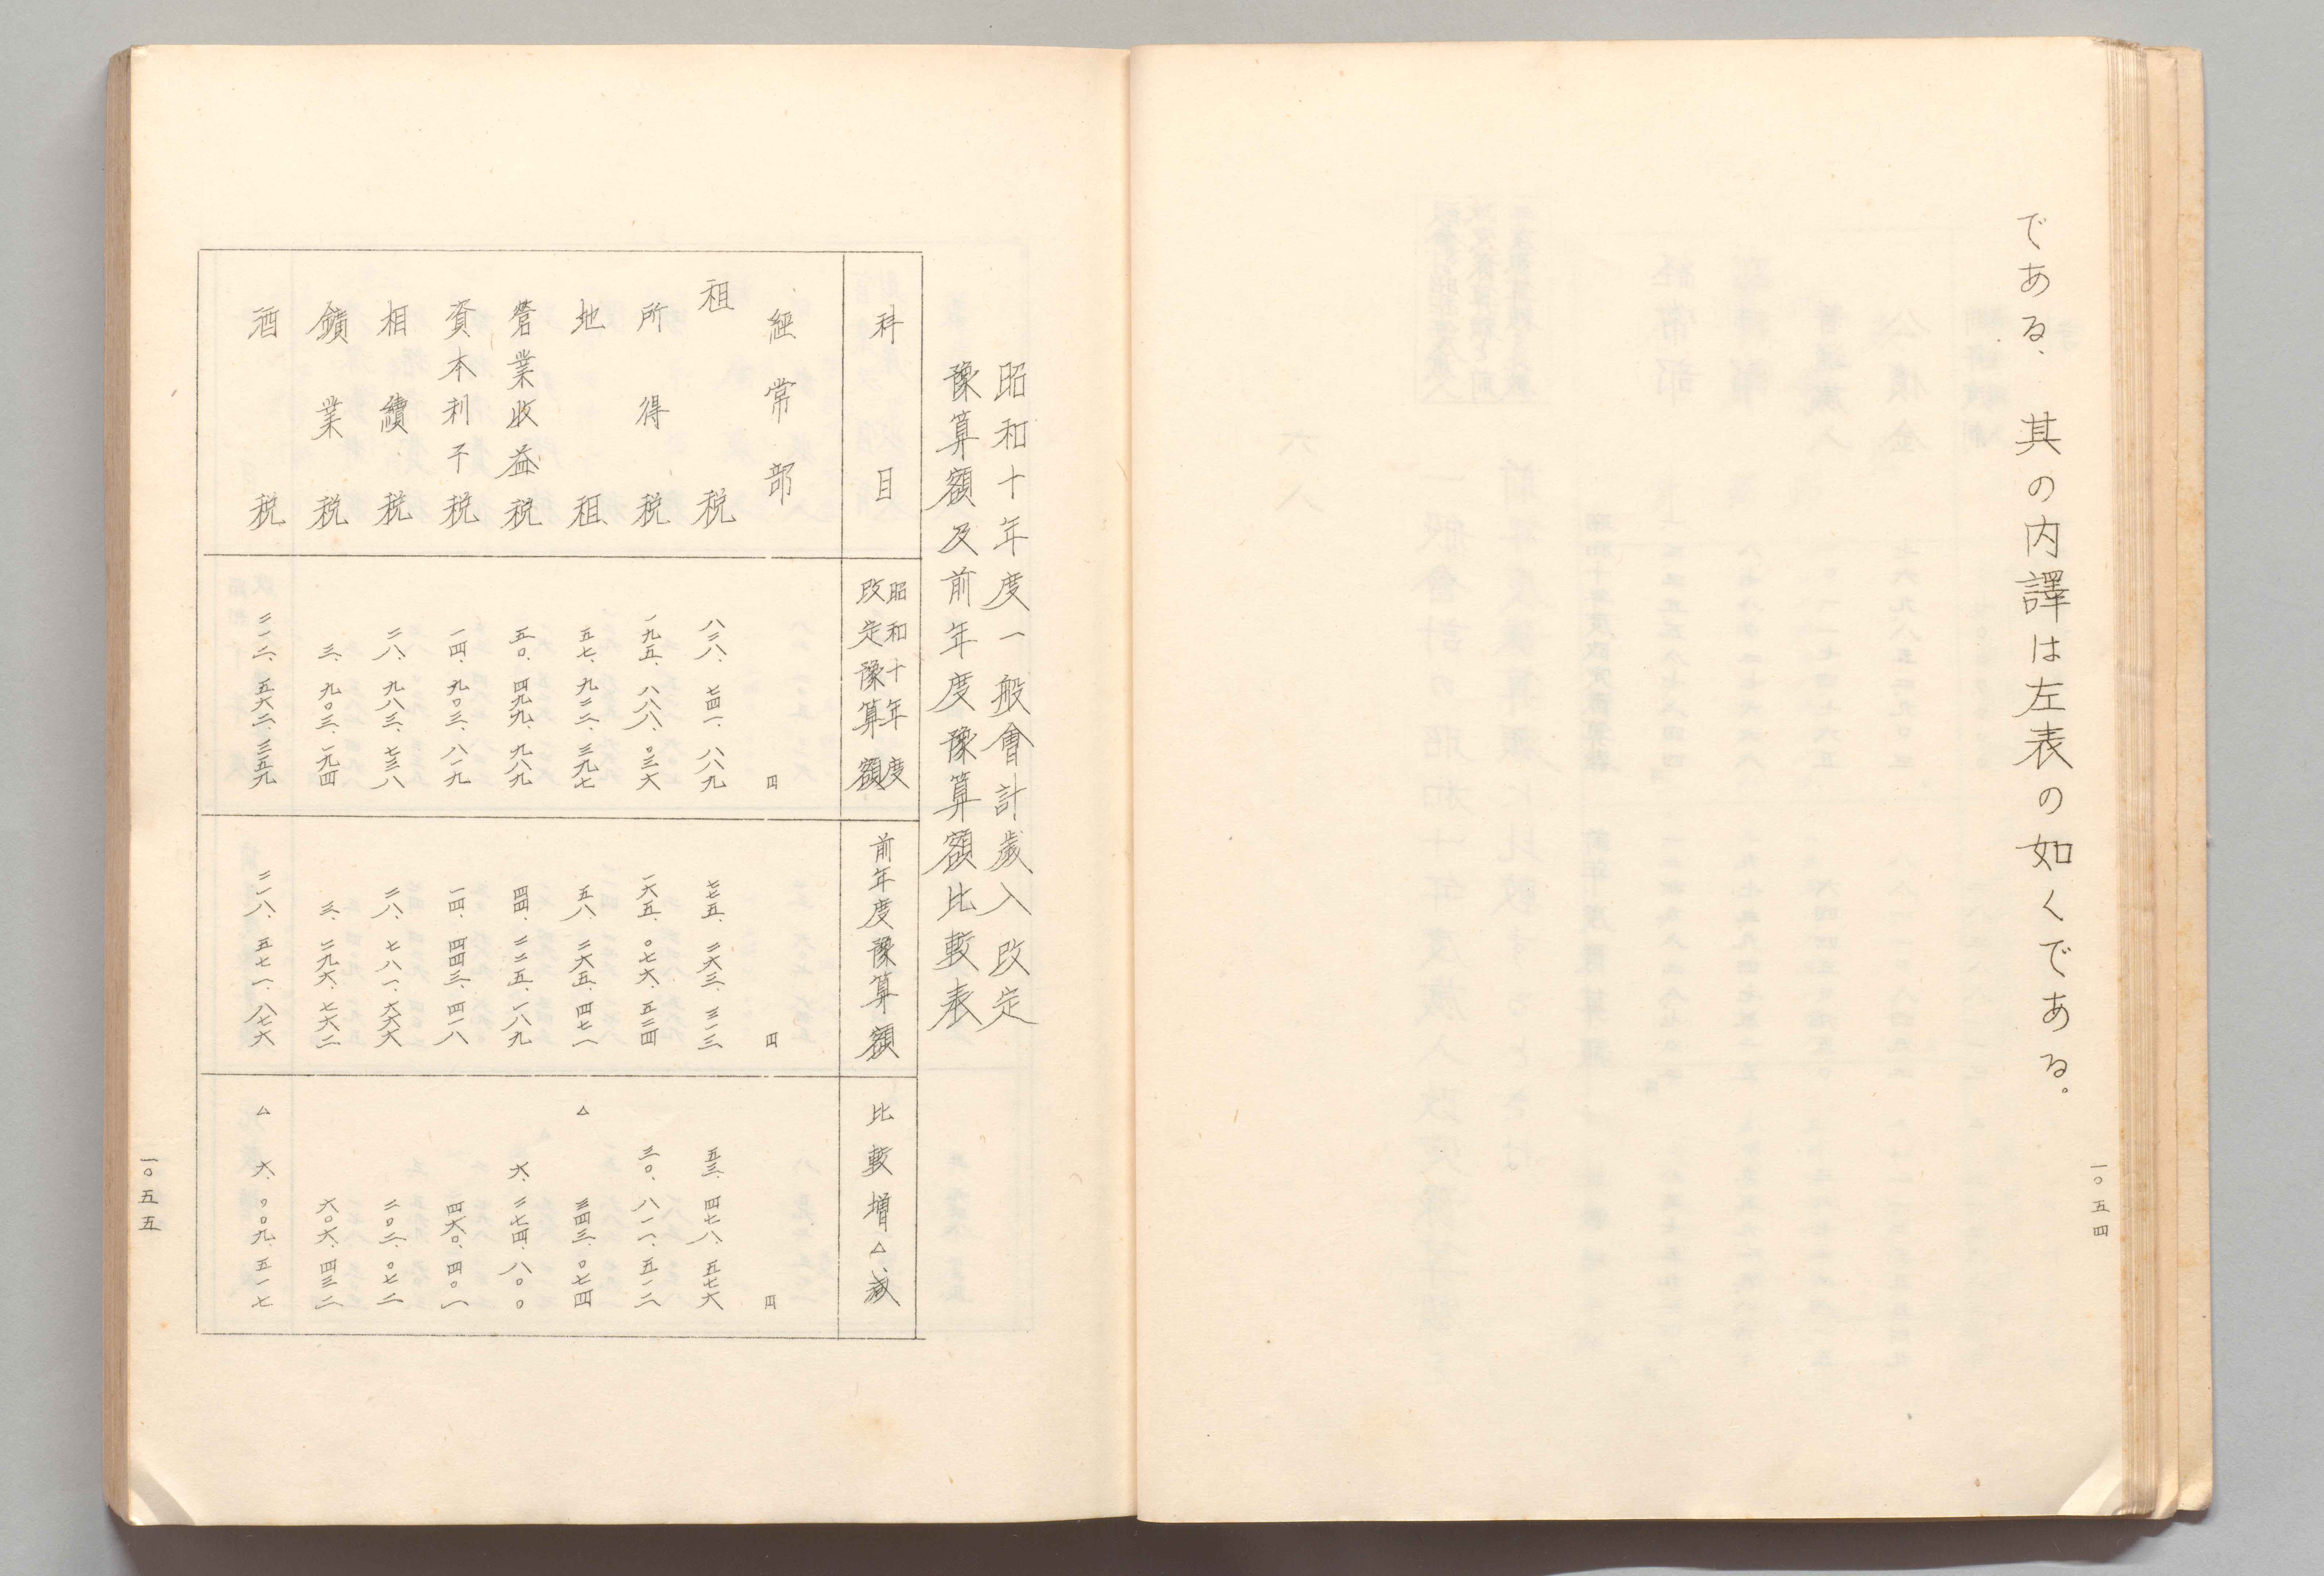 である、其の内譯は左表の如くである。
一〇五四
昭和十年度一般會計歲入改定
豫算額及前年度豫算額比較表
科目 昭和十年度改定豫算額 前年度豫算額 比較増△減
經常部 円 円 円
租税 八二八、七四一、八八九 七七五、二六三、三一三 五三、四七八、五七六
所得税 一九五、八八八、〇三六 一六五、〇七六、五二四 三〇、八一一、五一二
地租 五七、九二二、三九七 五八、二六五、四七一 △ 三四三、〇七四
營業收益税 五〇、四九九、九八九 四四、二二五、一八九 六、二七四、八〇〇
資本利子税 一四、九〇三、八一九 一四、四四三、四一八 四六〇、四〇一
相續税 二八、九八三、七三八 二八、七八一、六六六 二〇二、〇七二
鑛業税 三、九〇三、一九四 三、二九六、七六二 六〇六、四三二
酒税 二一二、五六二、三五九 二一八、五七一、八七六 △ 六、〇〇九、五一七
一〇五五